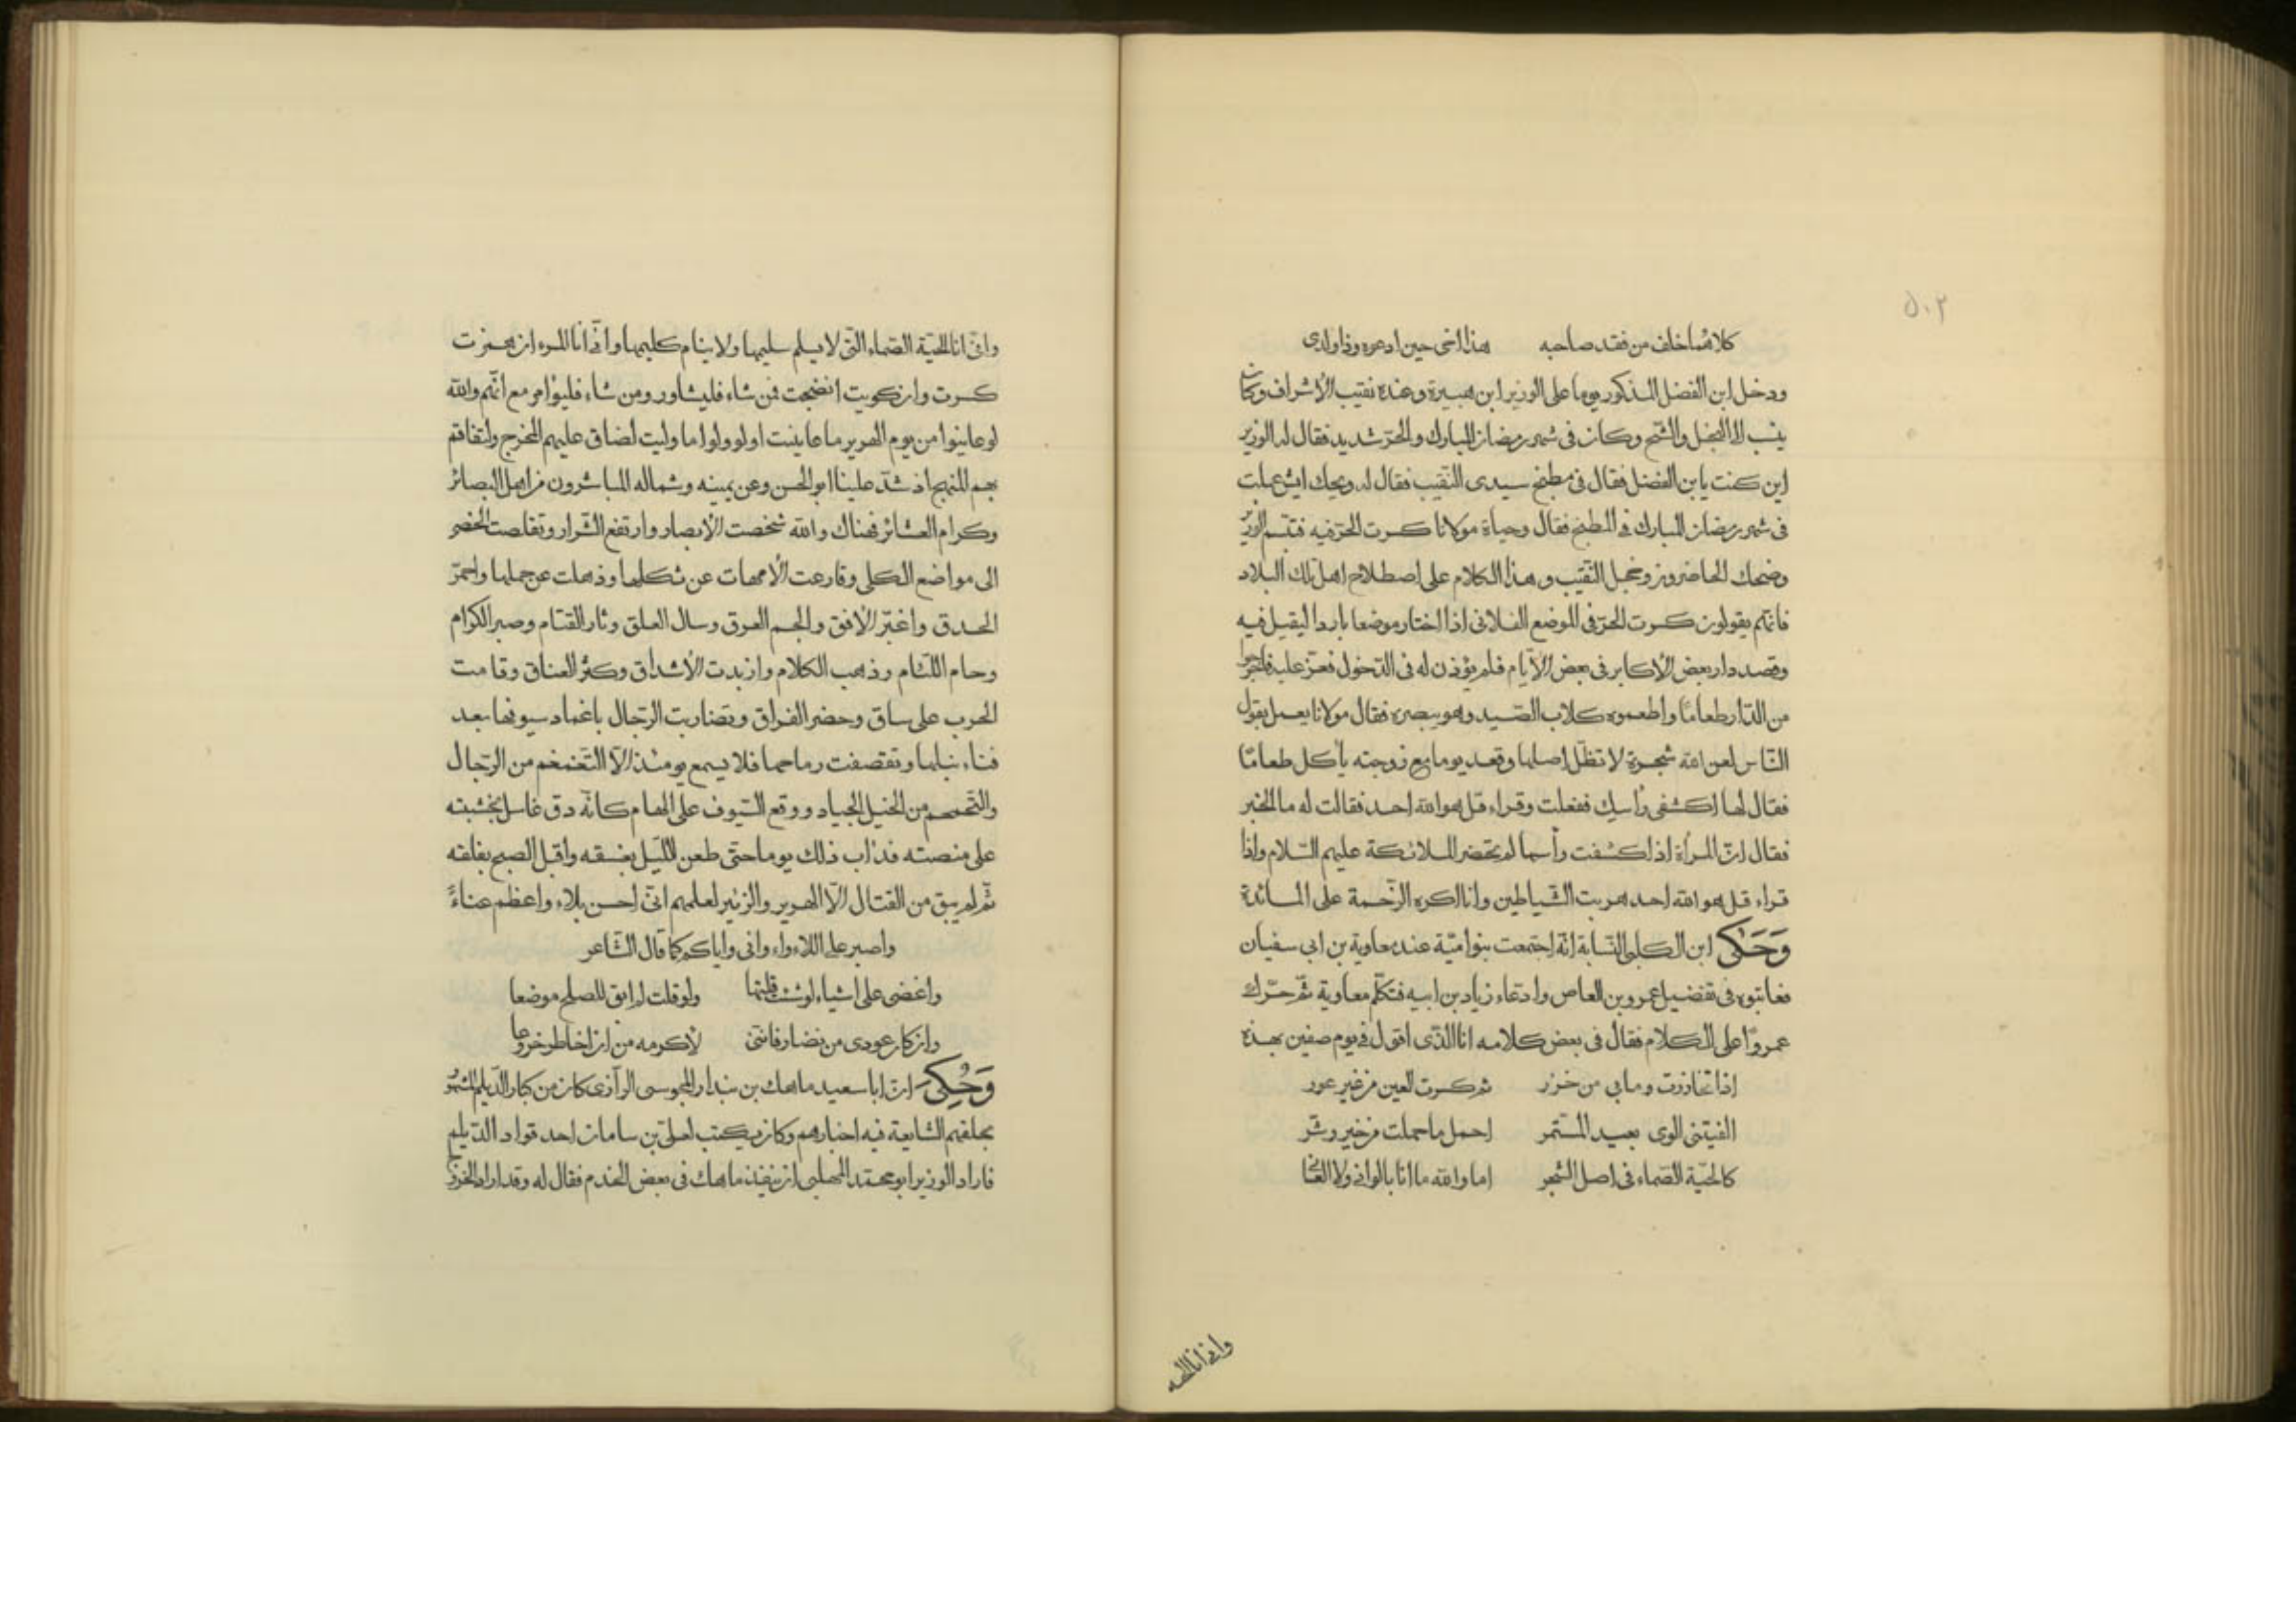 ٥٠٢
كلاهما خلف من فقد صاحبه هذا اخى حين ادعوه وذا ولدى
ودخل ابن الفضل المذكور يوما على الوزير ابن هبيرة وعنده نقيب الأشراف وكان
ينسب الى البخل والشح وكان فى شهر رمضان المبارك والحر شديد فقال له الوزير
اين كنت يا بن الفضل فقال فى مطبخ سيدى النقيب فقال له ويحك ايش عملت
فى شهر رمضان المبارك فى المطبخ فقال وحياة مولانا كسرت الحر فيه فتبسم الوزير
وضحك الحاضرون وخجل النقيب وهذا الكلام على اصطلاح اهل تلك البلاد
فانهم يقولون كسرت الحر فى الموضع الفلانى اذا اختار موضعا باردا ليقيل فيه
وقصد دار بعض الأكابر فى بعض الأيام فلم يؤذن له فى الدخول فعز عليه فاخرجوا
من الدار طعاما واطعموه كلاب الصيد وهو يبصره فقال مولانا يعمل بقول
الناس لعن الله شجرة لا تظل اصلها وقعد يوما مع زوجته يأكل طعاما
فقال لها اكشفى رأسك ففعلت وقراء قل هو الله احد فقالت له ما الخبر
فقال ان المرأة اذا كشفت رأسها لم تحضر الملائكة عليهم السلام واذا
قراء قل هو الله احد هربت الشياطين وانا اكره الزحمة على المائدة
وَحَكٰى ابن الكلبى النسابة انه اجتمعت بنو امية عند معاوية بن ابى سفيان
فعاتبوه فى تفضيل عمرو بن العاص وادعاء زياد بن ابيه فتكلم معاوية ثم حرك
عمروا على الكلام فقال فى بعض كلامه انا الذى اقول فى يوم صفين بهذه
اذا تخازرت وما بى من خزر ثم كسرت العين من غير عور
الفيتنى الوى بعيد المستمر احمل ما حملت من خير وشر
كالحية الصماء فى اصل الشجر اما والله ما انا بالوانى ولا الفانى
وانى انا الحية
وانى انا الحية الصماء التى لا يسلم سليمها ولا ينام كليمها وانى انا المرء ان همزت
كسرت وان كويت انضجت فمن شاء فليشاور ومن شاء فليؤامر مع انهم والله
لو عاينوا من يوم الهرير ما عاينت او لو ولوا ما وليت لضاق عليهم المخرج ولتفاقم
بهم المنهج اذ شد علينا ابو الحسن وعن يمينه وشماله المباشرون من اهل البصائر
وكرام العشائر فهناك والله شخصت الأبصار وارتفع الشرار وتقلصت الخصى
الى مواضع الكلى وقارعت الأمهات عن ثكلها وذهلت عن حملها واحمر
الحدق واغبر الأفق والجم العرق وسال العلق وثار القتام وصبر الكرام
وحام اللئام وذهب الكلام وازبدت الأشداق وكثر العناق وقامت
الحرب على ساق وحضر الفراق وتضاربت الرجال باغماد سيوفها بعد
فناء نبلها وتقصفت رماحها فلا يسمع يومئذ الا التغمغم من الرجال
والتحمحم من الخيل الجياد ووقع السيوف على الهام كانه دق غاسل بخشبته
على منصته فدأب ذلك يوما حتى طعن الليل بغسقه واقبل الصبح بفلقه
ثم لم يبق من القتال الا الهرير والزئير لعلمهم انى احسن بلاء واعظم عناءً
واصبر على اللاءواء وانى واياكم كما قال الشاعر
واغضى على اشياء لو شئت قلتها ولو قلت لم ابق للصلح موضعا
وان كان عودى من نضار فاننى لأكرمه من ان اخاطر خروعا
وَحُكِىَ ان ابا سعيد ماهك بن بندار المجوسى الرازى كان من كبار الديلم المشهور
بحلقهم الشايعة فيه اخبارهم وكان يكتب لعلى بن سامان احد قواد الديلم
فاراد الوزير ابو محمد المهلبى ان ينفذ ماهك فى بعض الخدم فقال له وقد اراد الخروج